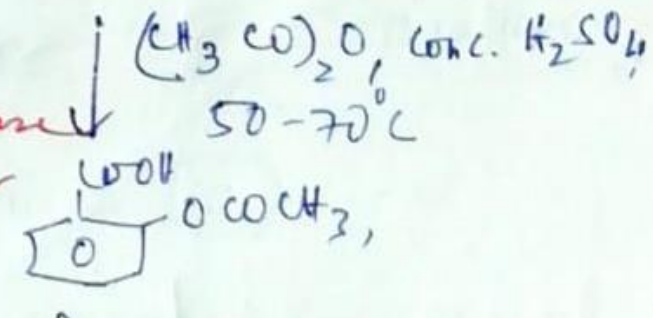 (CH3CO)2O, conc. H2SO4,
50-70°C
COOH
OCOCH3,